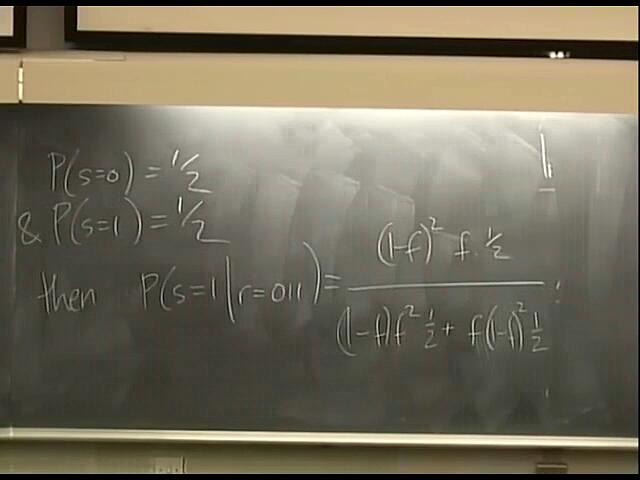 P(s=0) = 1/2
& P(s=1) = 1/2
then P(s=1|r=011) = (1-f)² f. 1/2
(1-f)f² 1/2 + f(1-f)² 1/2